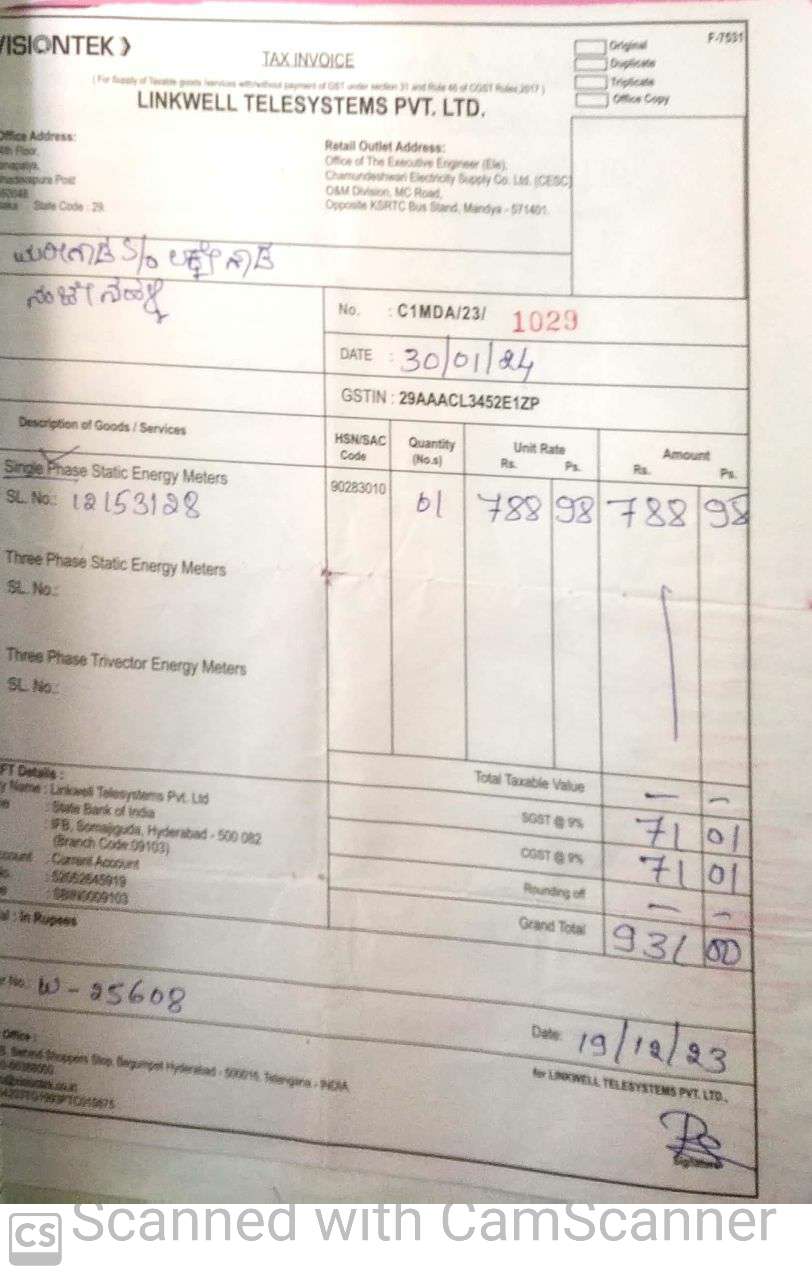 VISIONTEK
F-7531
TAX INVOICE
Original
Duplicate
Triplicate
Office Copy
( For Supply of Taxable goods /services with/without payment of GST under section 31 and Rule 46 of CGST Rules 2017 )
LINKWELL TELESYSTEMS PVT. LTD.
Office Address:
4th Floor,
Post
State Code : 29.
Retail Outlet Address:
Office of The Executive Engineer (Ele),
Chamundeshwari Electricity Supply Co. Ltd. (CESC)
O&M Division, MC Road,
Opposite KSRTC Bus Stand, Mandya - 571401.
S/o
No. : C1MDA/23/ 1029
DATE : 30/01/24
GSTIN : 29AAACL3452E1ZP
Description of Goods / Services HSN/SAC Code Quantity (No.s) Unit Rate Rs. Ps. Amount Rs. Ps.
Single Phase Static Energy Meters 90283010 01 788 98 788 98
SL. No.: 12153128
Three Phase Static Energy Meters
SL. No.:
Three Phase Trivector Energy Meters
SL. No.:
Total Taxable Value — —
SGST @ 9% 71 01
CGST @ 9% 71 01
Rounding off — —
Grand Total 931 00
FT Details :
y Name : Linkwell Telesystems Pvt. Ltd
: State Bank of India
: IFB, Somajiguda, Hyderabad - 500 082
(Branch Code:09103)
: Current Account
: 52052645919
: SBIN0009103
al : In Rupees
No. W - 25608
Date: 19/12/23
for LINKWELL TELESYSTEMS PVT. LTD.,
Office :
Behind Shoppers Stop, Begumpet Hyderabad - 500016, Telangana - INDIA
Signature
CS Scanned with CamScanner